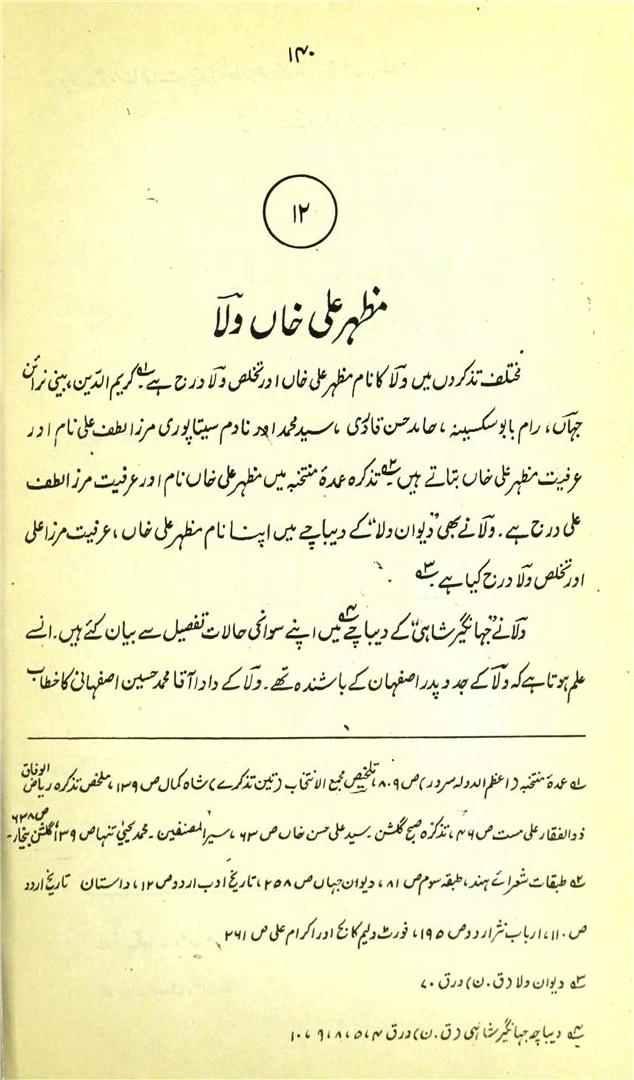 ۱۴۰
۱۲
مظہر علی خاں ولاؔ
مختلف تذکروں میں ولاؔ کا نام مظہر علی خاں اور تخلص ولاؔ درج ہے۱؎ کریم الدین، بینی نرائن
جہاں، رام بابو سکسینہ، حامد حسن قادری، سید محمد اور نادم سیتاپوری مرزا لطف علی نام اور
عرفیت مظہر علی خاں بتاتے ہیں۲؎ تذکرہ عمدۂ منتخبہ میں مظہر علی خاں نام اور عرفیت مرزا لطف
علی درج ہے۔ ولاؔ نے بھی ”دیوان ولا“ کے دیباچے میں اپنا نام مظہر علی خاں، عرفیت مرزا علی
اور تخلص ولاؔ درج کیا ہے۳؎
ولاؔ نے ”جہانگیر شاہی“ کے دیباچے۴؎ میں اپنے سوانحی حالات تفصیل سے بیان کئے ہیں۔ انسے
علم ہوتا ہے کہ ولاؔ کے جد و پدر اصفہان کے باشندہ تھے۔ ولاؔ کے دادا آقا محمد حسین اصفہانی کا خطاب
۱؎ عمدۂ منتخبہ (اعظم الدولہ سرور) ص ۸۰۹، تلخیص مجمع الانتخاب (تین تذکرے) شاہ کمال ص ۱۳۹، ملخص تذکرہ ریاض الوفاق
ذوالفقار علی مست ص ۴۶، تذکرہ صبح گلشن۔ سید علی حسن خاں ص ۶۳، سیر المصنفین۔ محمد یحییٰ تنہا ص ۱۳۹، گلشن بیخار۔ ص ۶۳۸
۲؎ طبقات شعرائے ہند، طبقہ سوم ص ۸۱، دیوان جہاں ص ۲۵۸، تاریخ ادب اردو ص ۱۲، داستان تاریخ اردو
ص ۱۱۰، ارباب نثر اردو ص ۱۹۵، فورٹ ولیم کالج اور اکرام علی ص ۲۶۱
۳؎ دیوان ولا (ق۔ن) ورق ۷۰
۴؎ دیباچہ جہانگیر شاہی (ق۔ن) ورق ۴، ۵، ۸، ۹، ۱۰